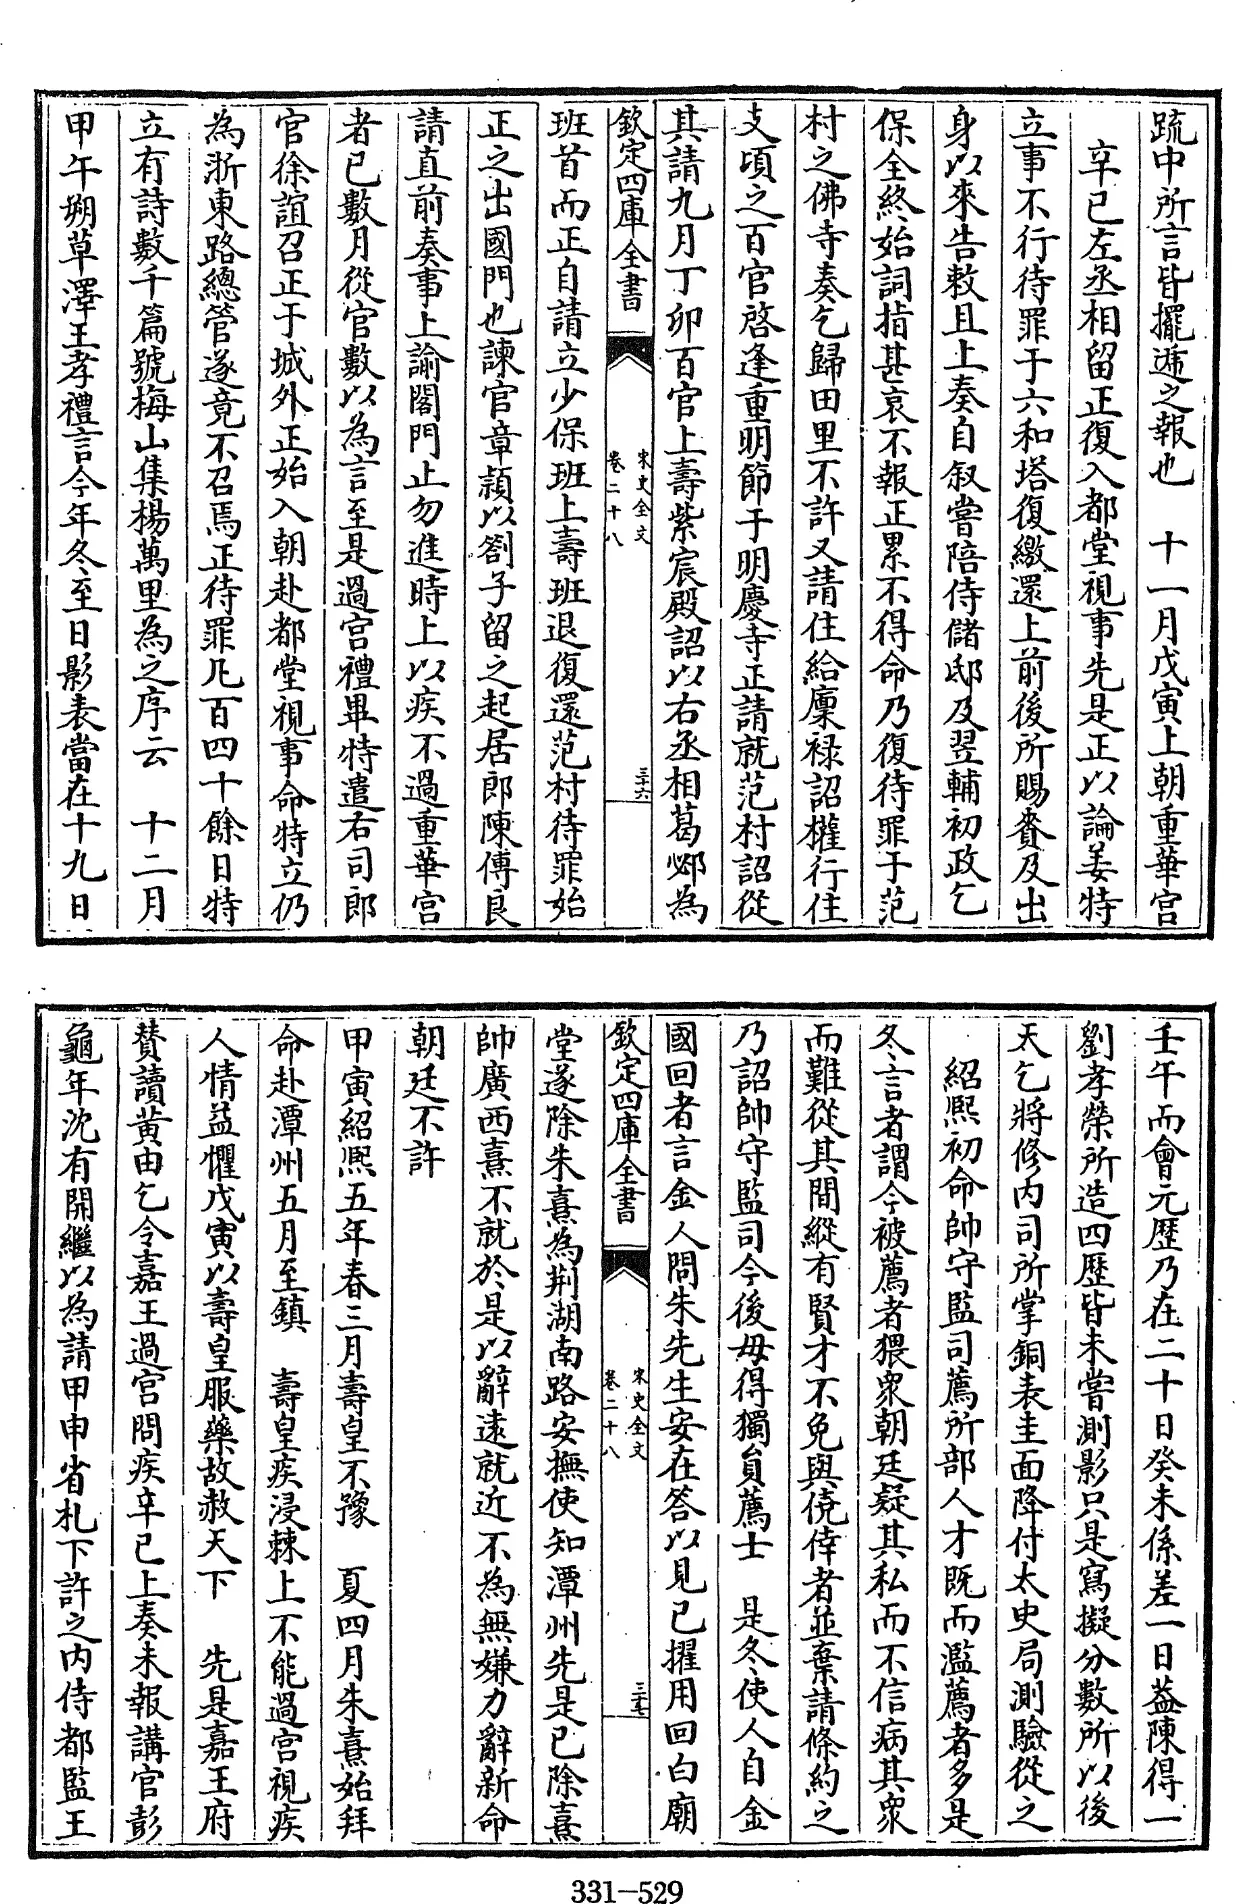 疏中所言皆擺遞之報也　十一月戊寅上朝重華宮
辛已左丞相留正復入都堂視事先是正以論姜特
立事不行待罪于六和塔復繳還上前後所賜賚及出
身以來告敕且上奏自叙嘗陪侍儲邸及翌輔初政乞
保全終始詞指甚哀不報正累不得命乃復待罪于范
村之佛寺奏乞歸田里不許又請住給廩祿詔權行住
支頃之百官啓逢重明節于明慶寺正請就范村詔從
其請九月丁卯百官上壽紫宸殿詔以右丞相葛邲為
欽定四庫全書
宋史全文
卷二十八
三十六
班首而正自請立少保班上壽班退復還范村待罪始
正之出國門也諫官章穎以劄子留之起居郎陳傅良
請直前奏事上諭閤門止勿進時上以疾不過重華宮
者已數月從官數以為言至是過宮禮畢特遣右司郎
官徐誼召正于城外正始入朝赴都堂視事命特立仍
為浙東路總管遂竟不召焉正待罪凡百四十餘日特
立有詩數千篇號梅山集楊萬里為之序云　十二月
甲午朔草澤王孝禮言今年冬至日影表當在十九日
壬午而會元歷乃在二十日癸未係差一日葢陳得一
劉孝榮所造四歷皆未嘗測影只是寫擬分數所以後
天乞將修内司所掌銅表圭面降付太史局測驗從之
紹熙初命帥守監司薦所部人才既而濫薦者多是
冬言者謂今被薦者猥衆朝廷疑其私而不信病其衆
而難從其間縱有賢才不免與僥倖者並棄請條約之
乃詔帥守監司今後毋得獨員薦士　是冬使人自金
國回者言金人問朱先生安在答以見已擢用回白廟
欽定四庫全書
宋史全文
卷二十八
三十七
堂遂除朱熹為荆湖南路安撫使知潭州先是已除熹
帥廣西熹不就於是以辭遠就近不為無嫌力辭新命
朝廷不許
甲寅紹熙五年春三月壽皇不豫　夏四月朱熹始拜
命赴潭州五月至鎮　壽皇疾浸棘上不能過宮視疾
人情益懼戊寅以壽皇服藥故赦天下　先是嘉王府
賛讀黄由乞令嘉王過宮問疾辛已上奏未報講官彭
龜年沈有開繼以為請甲申省札下許之内侍都監王
331—529